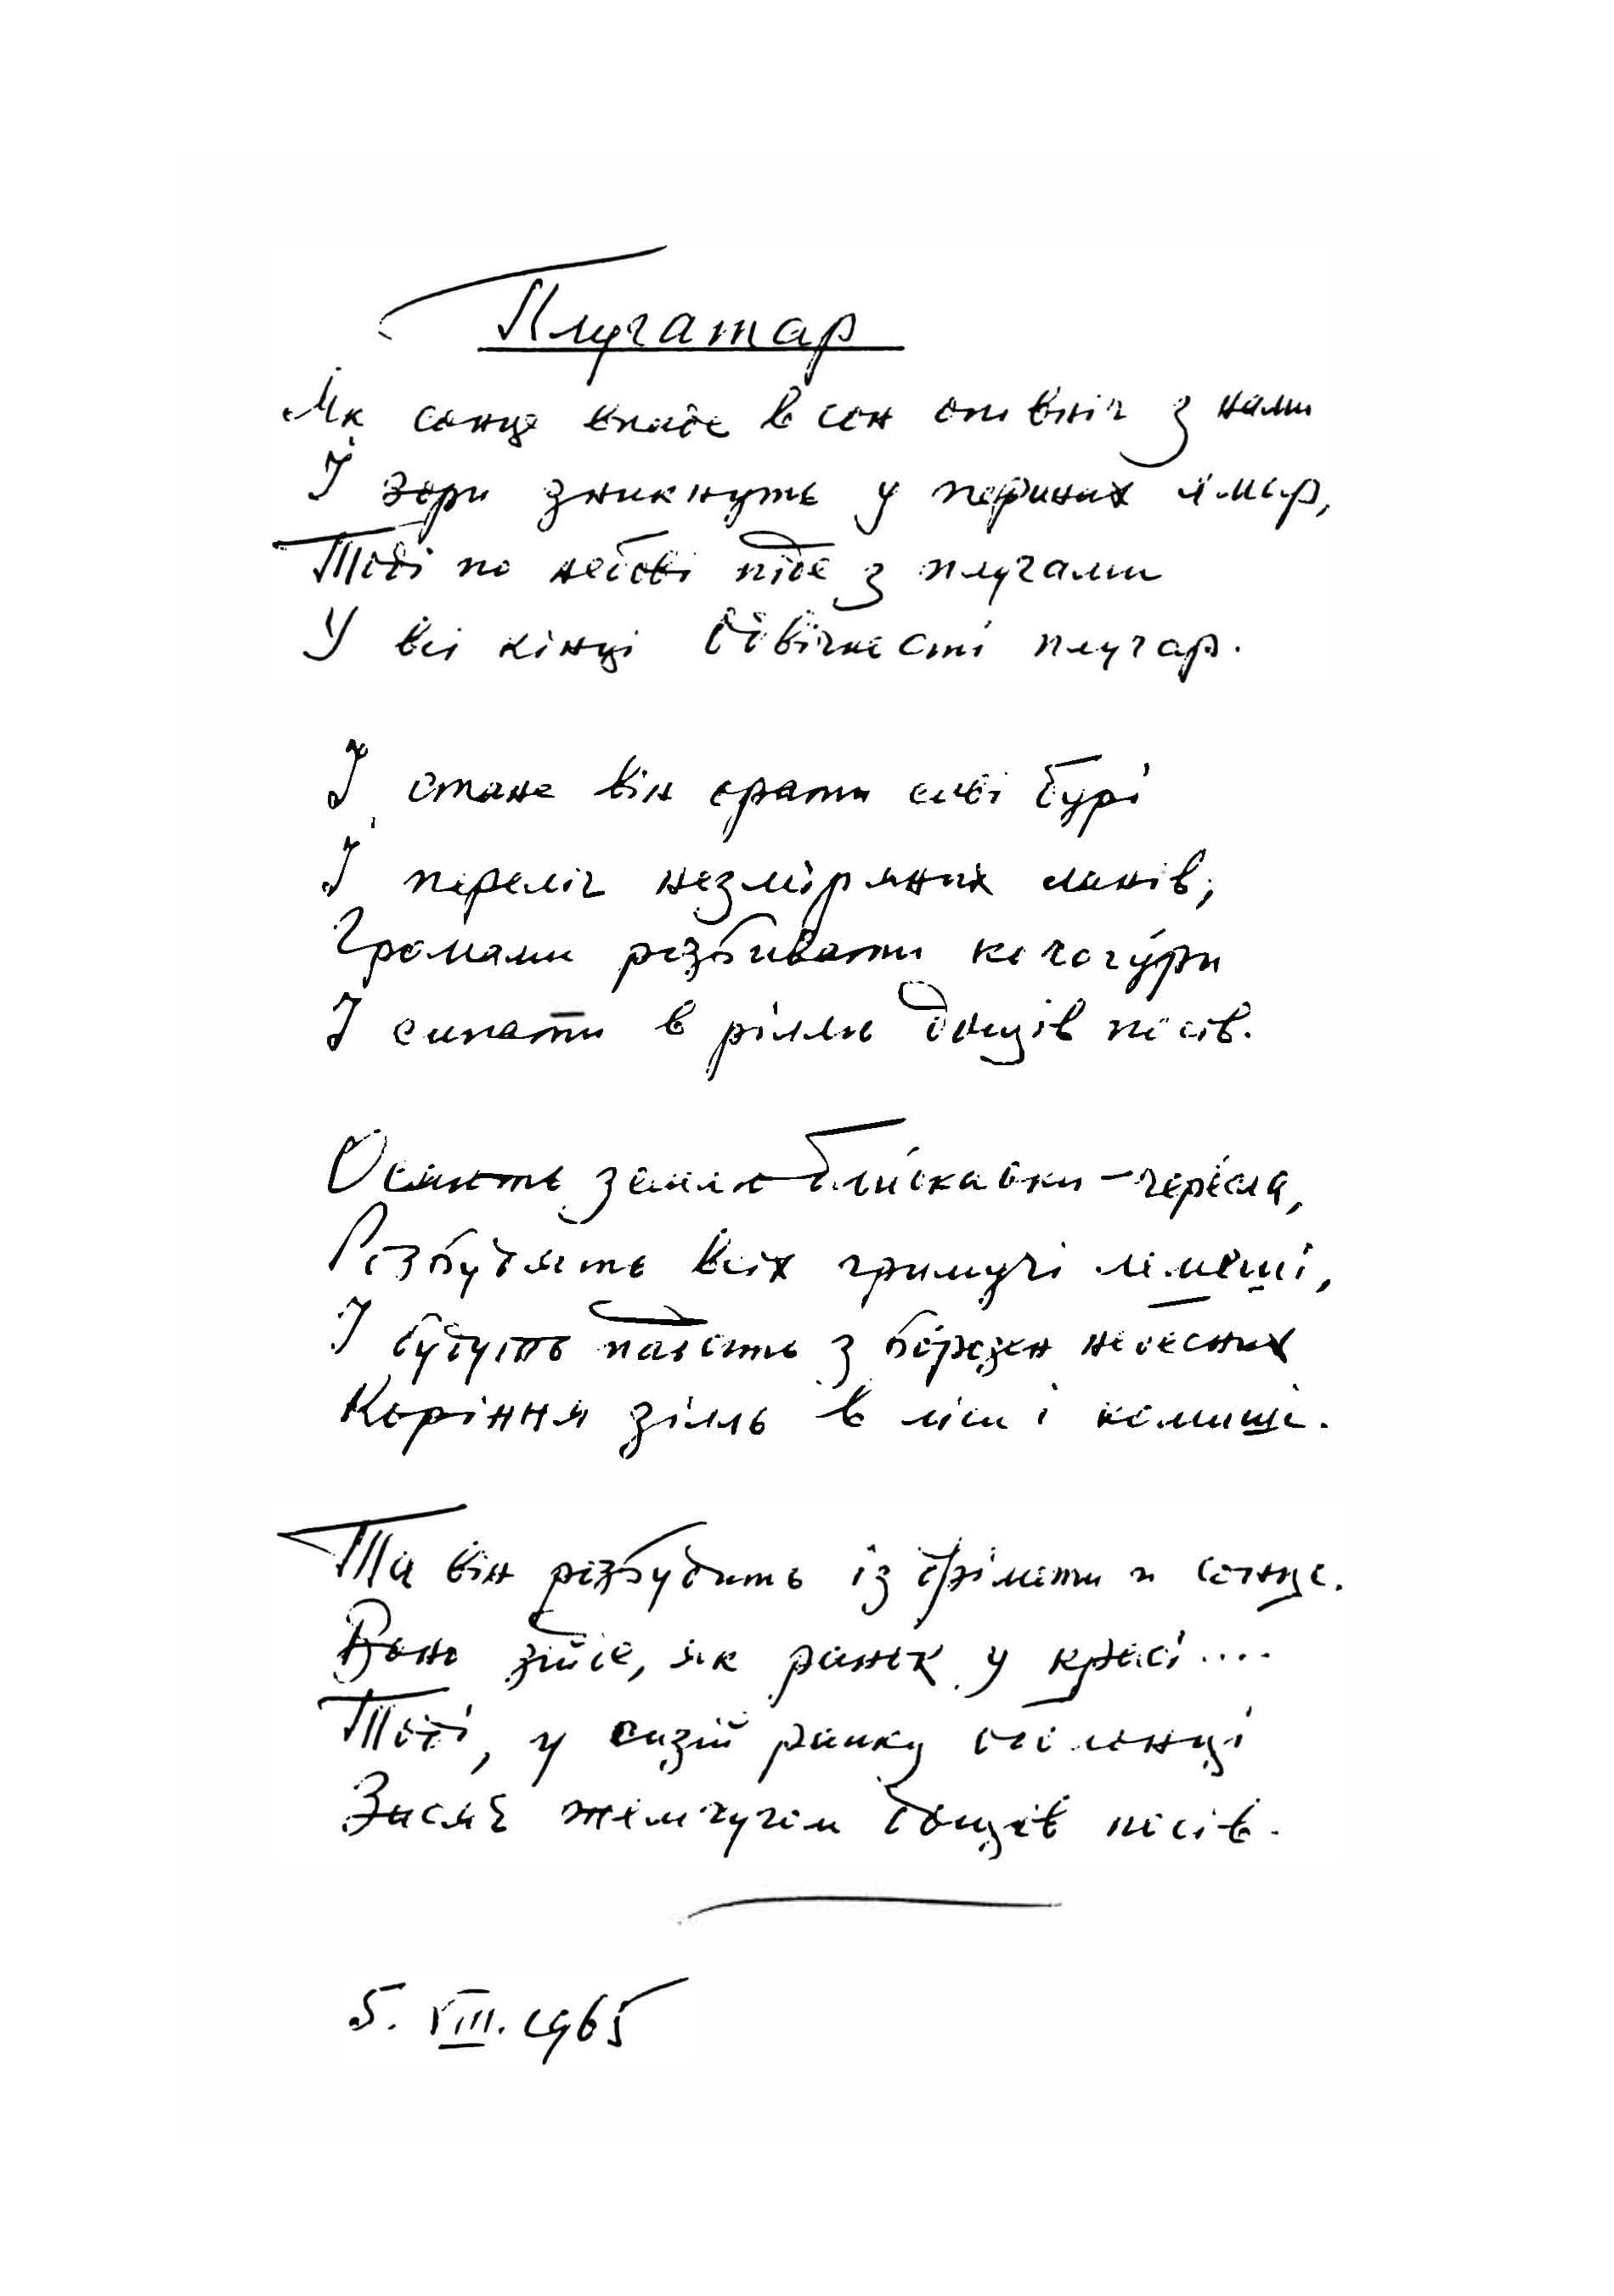 Плугатар
Як сонце впаде в сон опівніч з нами
І зори зникнуть у перинах хмар,
Тоді по небові піде з плугами
У всі кінці одвічности плугар.
І стане він орати сиві бурі
І переліг незміряних ланів,
Громами розбивати кучугури
І сипати в ріллю дощів посів.
Осяють землю блискавки-чересла,
Розбудять всіх гримучі лемеші,
І будуть падать з борозен небесних
Коріння зілль в ліси і комиші.
Та він розбудить із дрімоти и сонце.
Воно зійде, як ранок у красі....
Тоді, у сизій ранку оболонці
Засяє жемчугом дощів посів.
5. VIII. 1965